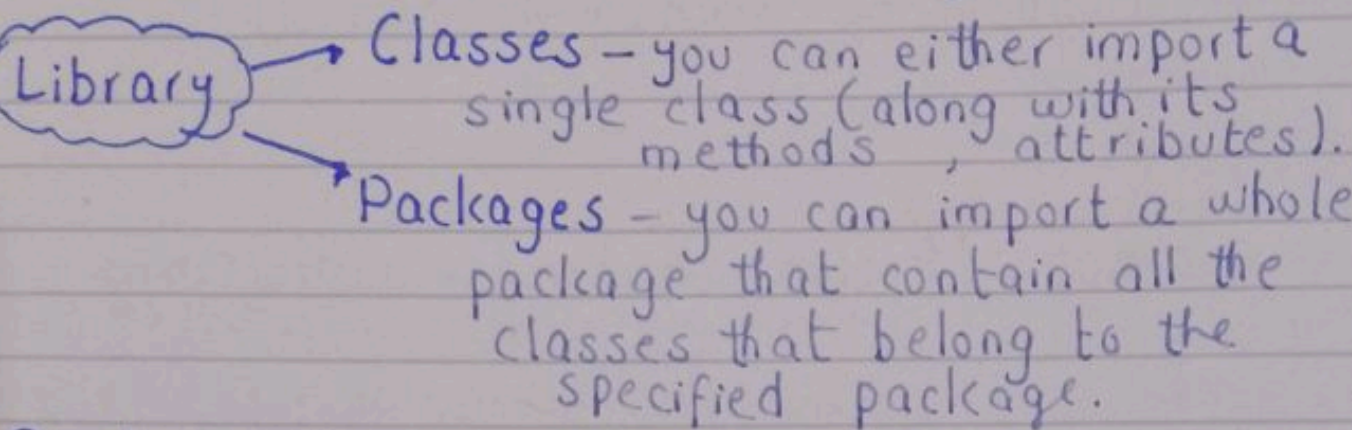 Library
Classes - you can either import a
single class (along with its
methods , attributes).
Packages - you can import a whole
package that contain all the
classes that belong to the
specified package.